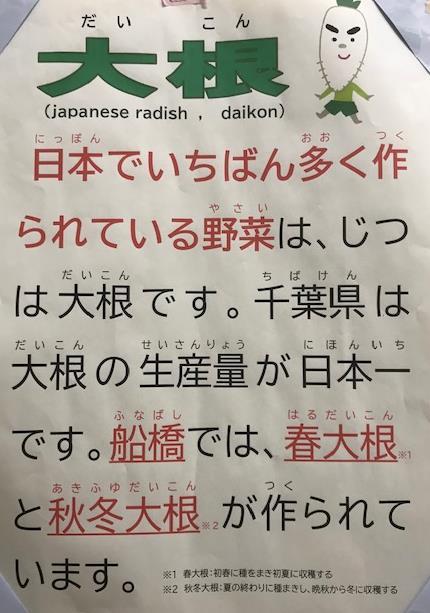 だいこん
大根
(japanese radish , daikon)
にっぽん おお つく
日本でいちばん多く作
やさい
られている野菜は、じつ
だいこん ちばけん
は大根です。千葉県は
だいこん せいさんりょう にほんいち
大根の生産量が日本一
ふなばし はるだいこん
です。船橋では、春大根※1
あきふゆだいこん つく
と秋冬大根※2が作られて
います。
※1 春大根：初春に種をまき初夏に収穫する
※2 秋冬大根：夏の終わりに種まきし、晩秋から冬に収穫する